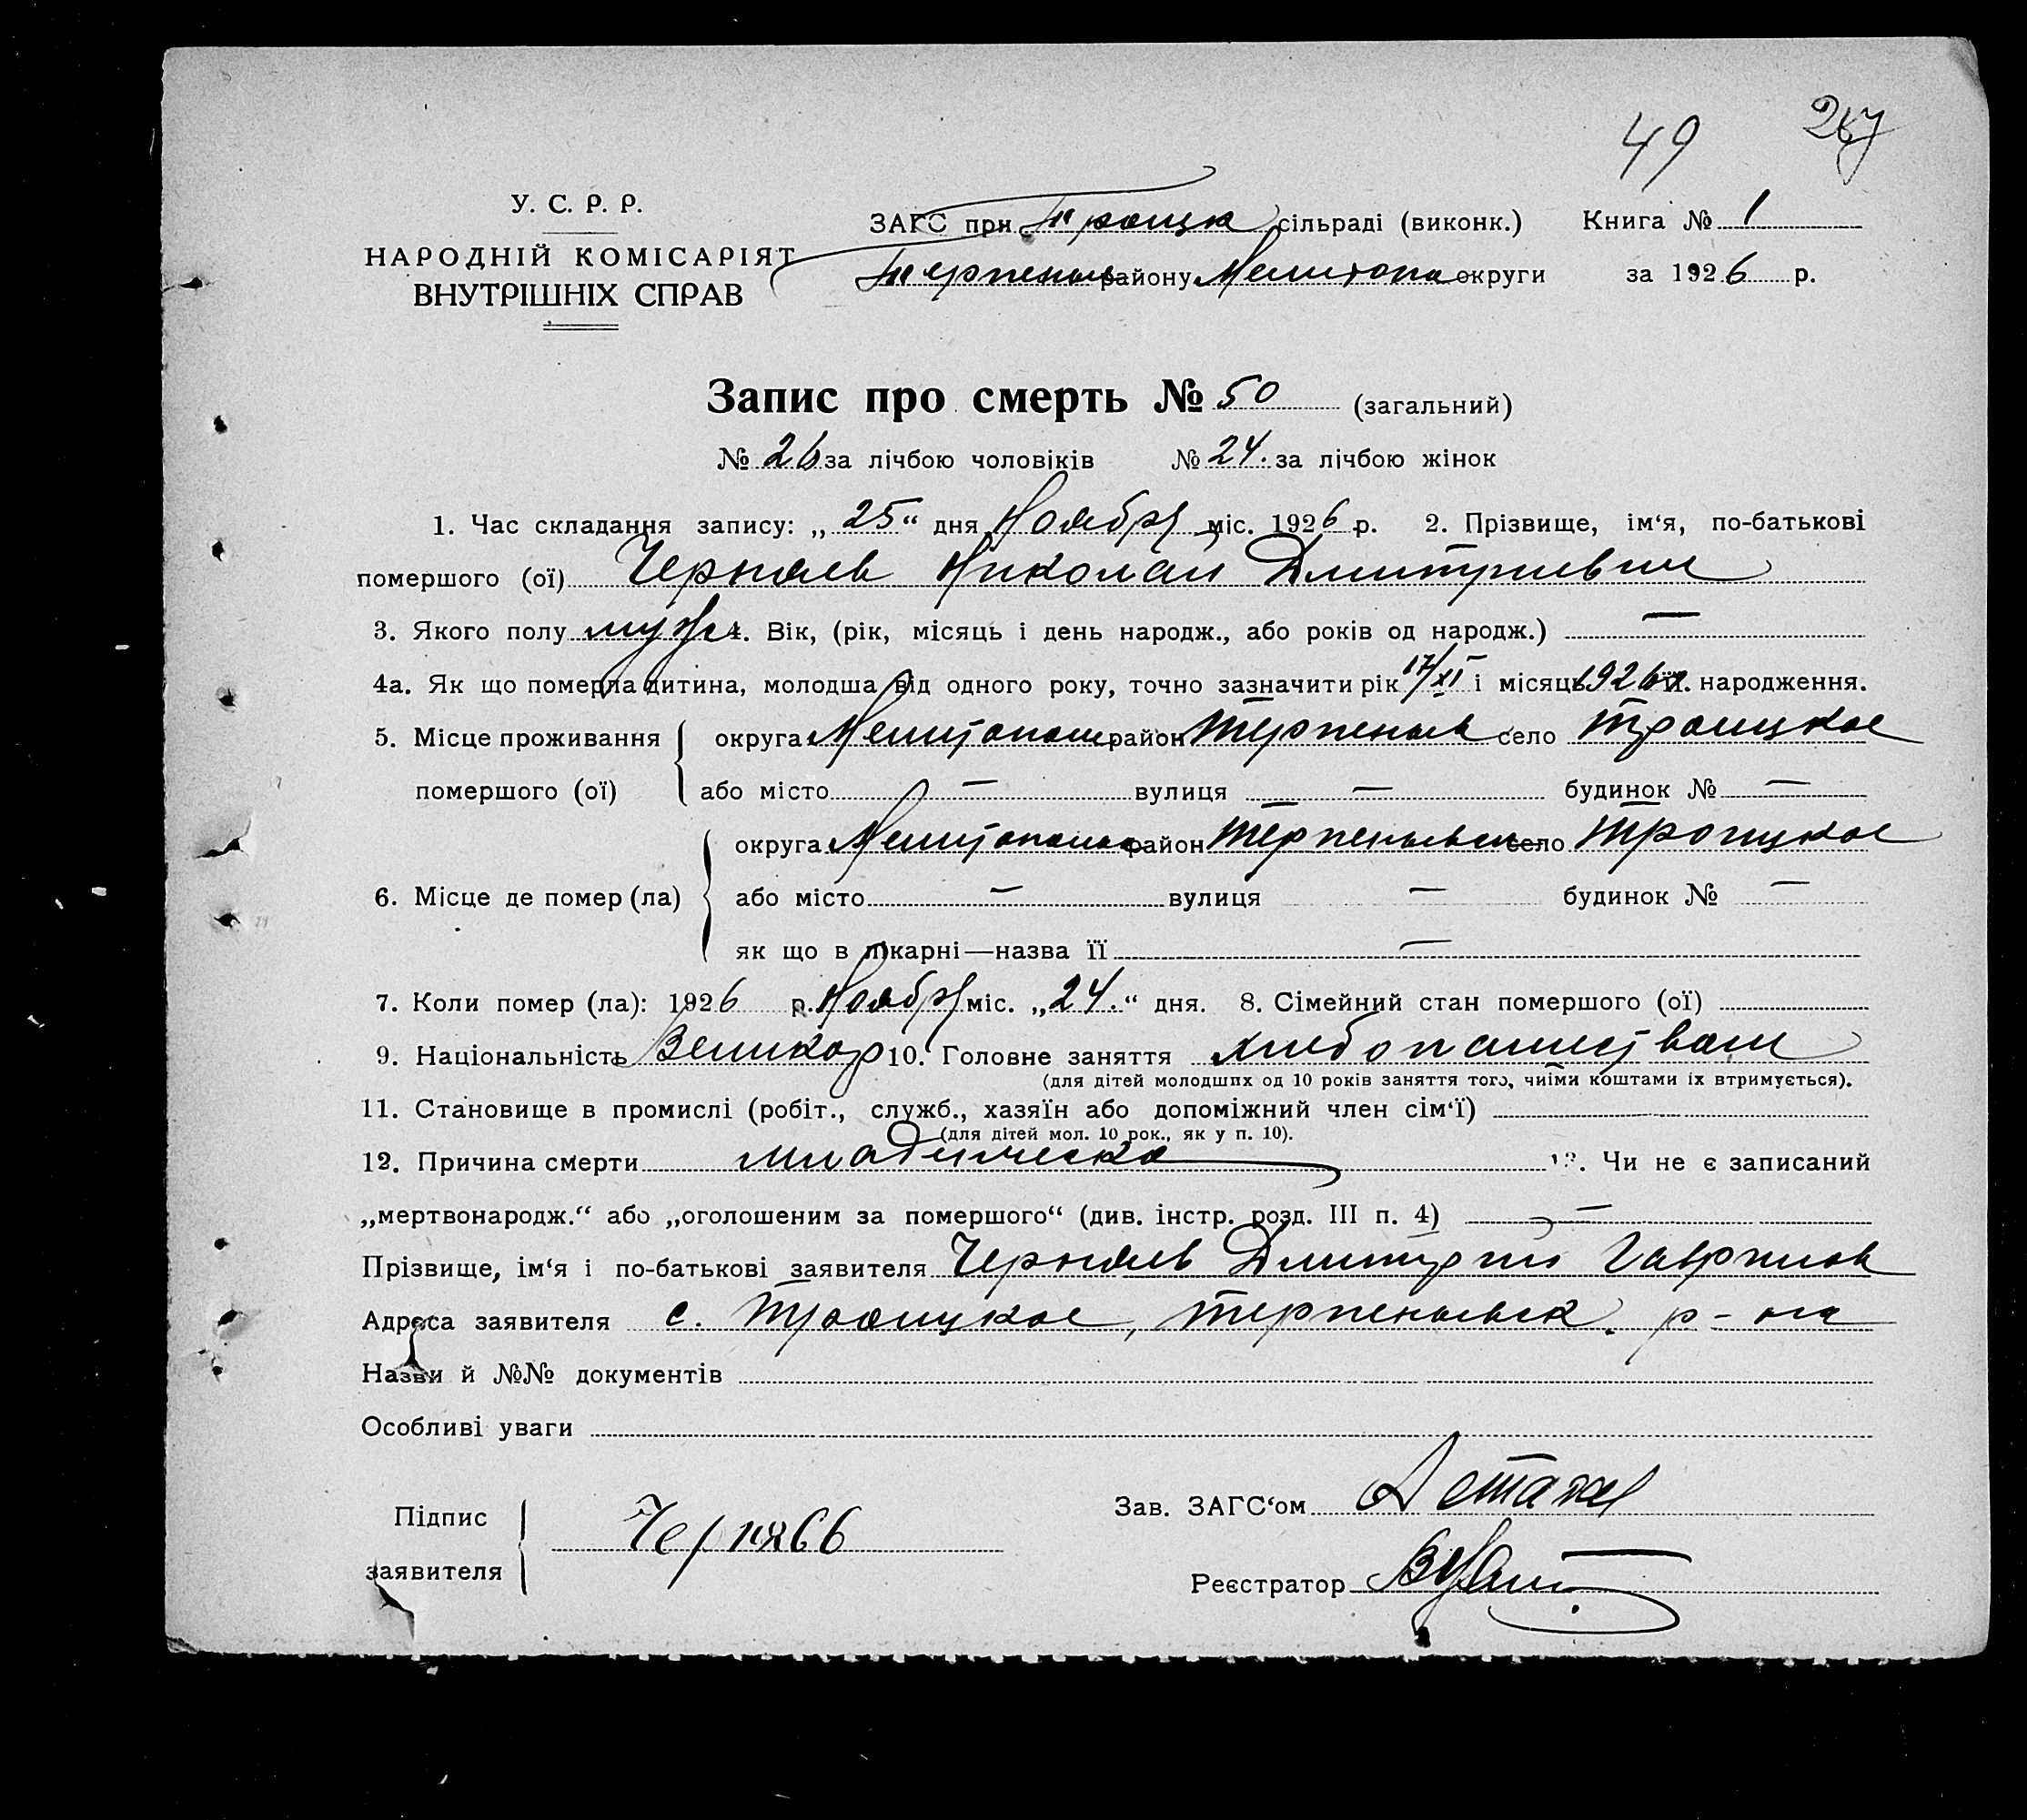 49 267
У. С. Р. Р.
НАРОДНІЙ КОМІСАРІЯТ
ВНУТРІШНІХ СПРАВ
ЗАГС при Троицк сільраді (виконк.) Книга № 1
Терпеньев району Мелитопа округи за 1926 р.
Запис про смерть № 50 (загальний)
№ 26 за лічбою чоловіків № 24. за лічбою жінок
1. Час складання запису: „25“ дня Ноября міс. 1926 р. 2. Прізвище, ім‘я, по-батькові
помершого (ої) Черняев Николай Дмитриевич
3. Якого полу муж 4. Вік, (рік, місяць і день народж., або років од народж.) —
4а. Як що померла дитина, молодша від одного року, точно зазначити рік 17/XI і місяць 1926 її народження.
5. Місце проживання округа Мелитопол район Терпеньев село Троицкое
помершого (ої) або місто — вулиця — будинок № —
округа Мелитопол район Терпеньевск село Троицкое
6. Місце де помер (ла) або місто — вулиця — будинок № —
як що в лікарні—назва її —
7. Коли помер (ла): 1926 р. Ноября міс. „24.“ дня. 8. Сімейний стан помершого (ої)
9. Національність Великор 10. Головне заняття хлебопашеством
(для дітей молодших од 10 років заняття того, чиїми коштами їх втримується).
11. Становище в промислі (робіт., служб., хазяїн або допоміжний член сім‘ї)
(для дітей мол. 10 рок., як у п. 10).
12. Причина смерти младическая 13. Чи не є записаний
„мертвонародж.“ або „оголошеним за помершого“ (див. інстр. розд. III п. 4) —
Прізвище, ім‘я і по-батькові заявителя Черняев Дмитрий Гаврилов
Адреса заявителя с. Троицкое, Терпеньевск. р-на
Назви й №№ документів
Особливі уваги
Підпис
заявителя Черняев
Зав. ЗАГС‘ом
Реєстратор